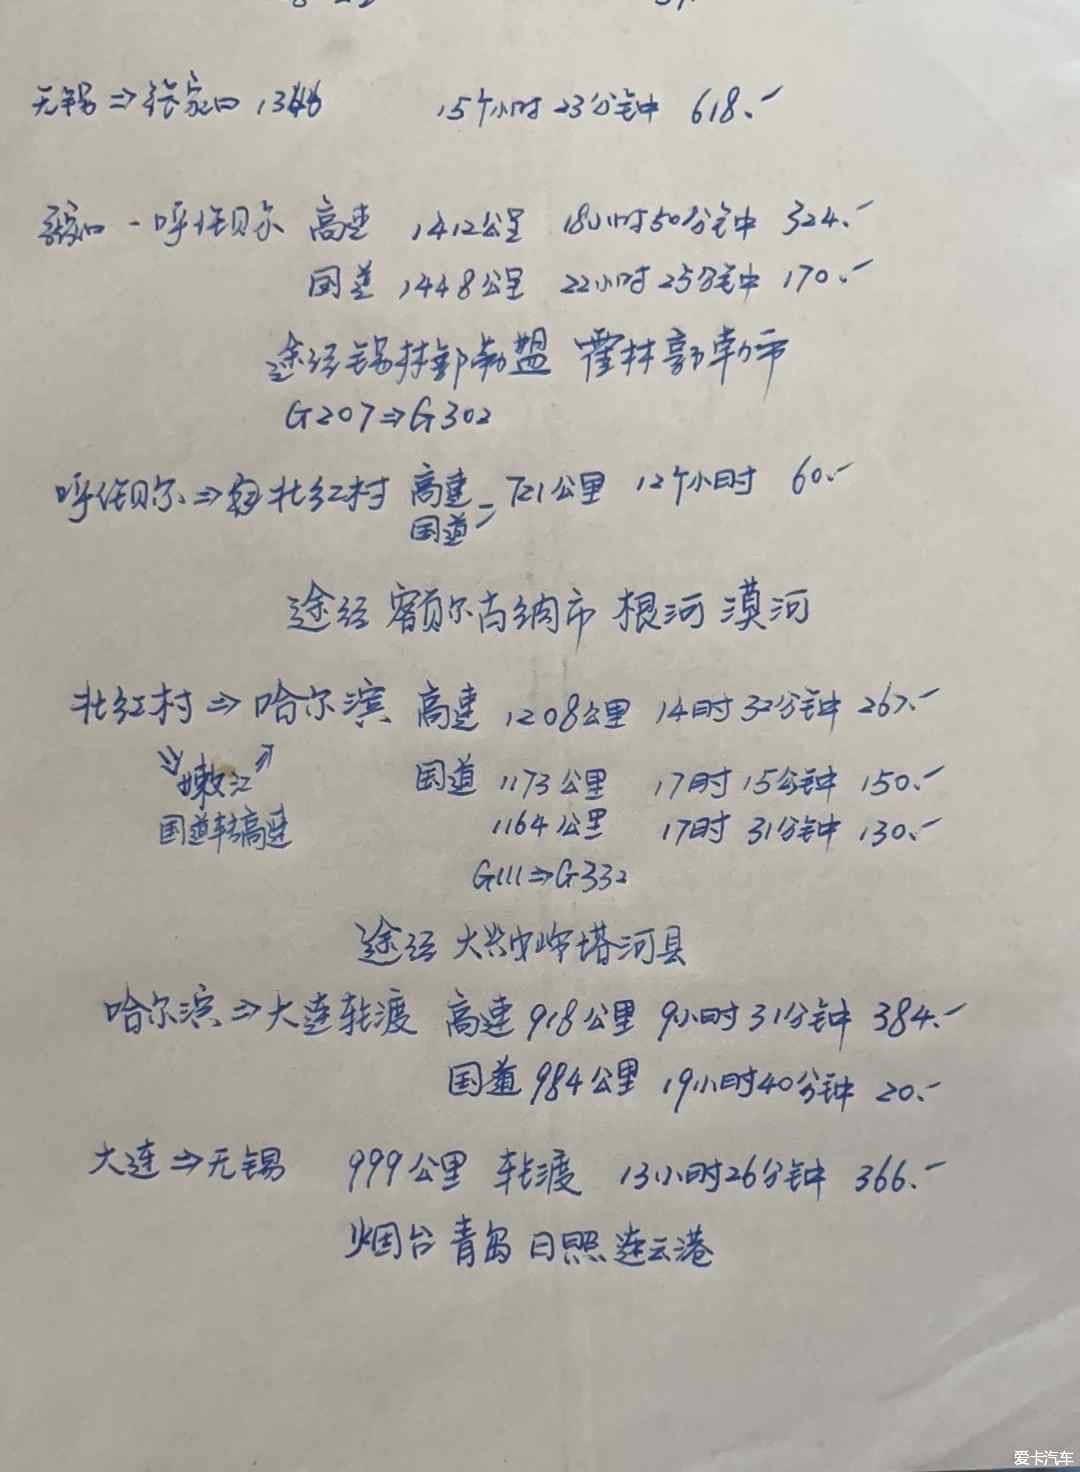 无锡⇒张家口 15个小时23分钟 618.-
张家口-呼伦贝尔 高速 1412公里 18小时50分钟 324.-
国道 1448公里 22小时25分钟 170.-
途经锡林郭勒盟 霍林郭勒市
G207⇒G302
呼伦贝尔⇒北红村 高速 721公里 12个小时 60.-
国道
途经 额尔古纳市 根河 漠河
北红村⇒哈尔滨 高速 1208公里 14时32分钟 267.-
嫩江 国道 1173公里 17时15分钟 150.-
国道转高速 1164公里 17时31分钟 130.-
G111⇒G332
途经 大兴安岭塔河县
哈尔滨⇒大连轮渡 高速 918公里 9小时31分钟 384.-
国道 984公里 19小时40分钟 20.-
大连⇒无锡 999公里 轮渡 13小时26分钟 366.-
烟台 青岛 日照 连云港
爱卡汽车